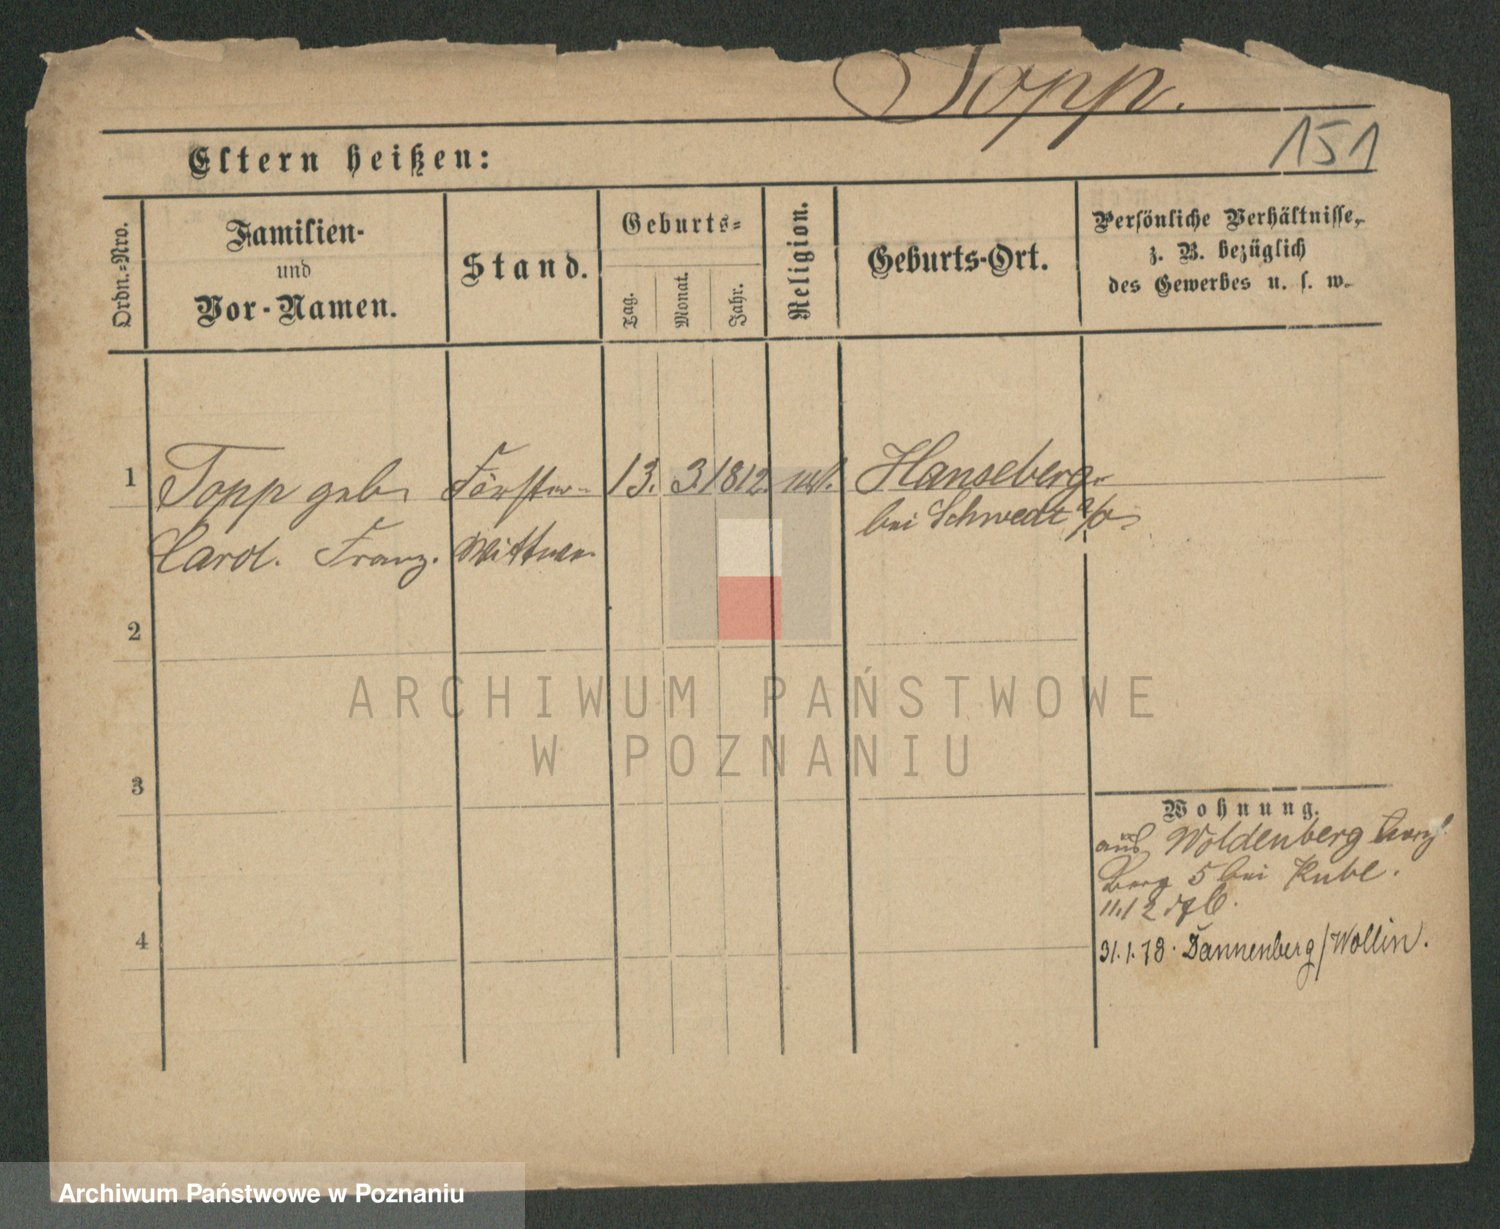 Topp.
151
Eltern heißen:
Ordn.-Nro.
Familien-
und
Vor-Namen.
Stand.
Geburts-
Tag.
Monat.
Jahr.
Religion.
Geburts-Ort.
Persönliche Verhältnisse,
z. B. bezüglich
des Gewerbes u. s. w.
1
Topp geb. Förster- 13. 3 1812. Hanseberg
bei Schwedt a/O
Carol. Franz. Wittwe
2
3
4
ARCHIWUM PAŃSTWOWE
W POZNANIU
Wohnung.
aus Woldenberg
Berg 5 bei
11.12
31.1.78. Dannenberg/Wollin.
Archiwum Państwowe w Poznaniu